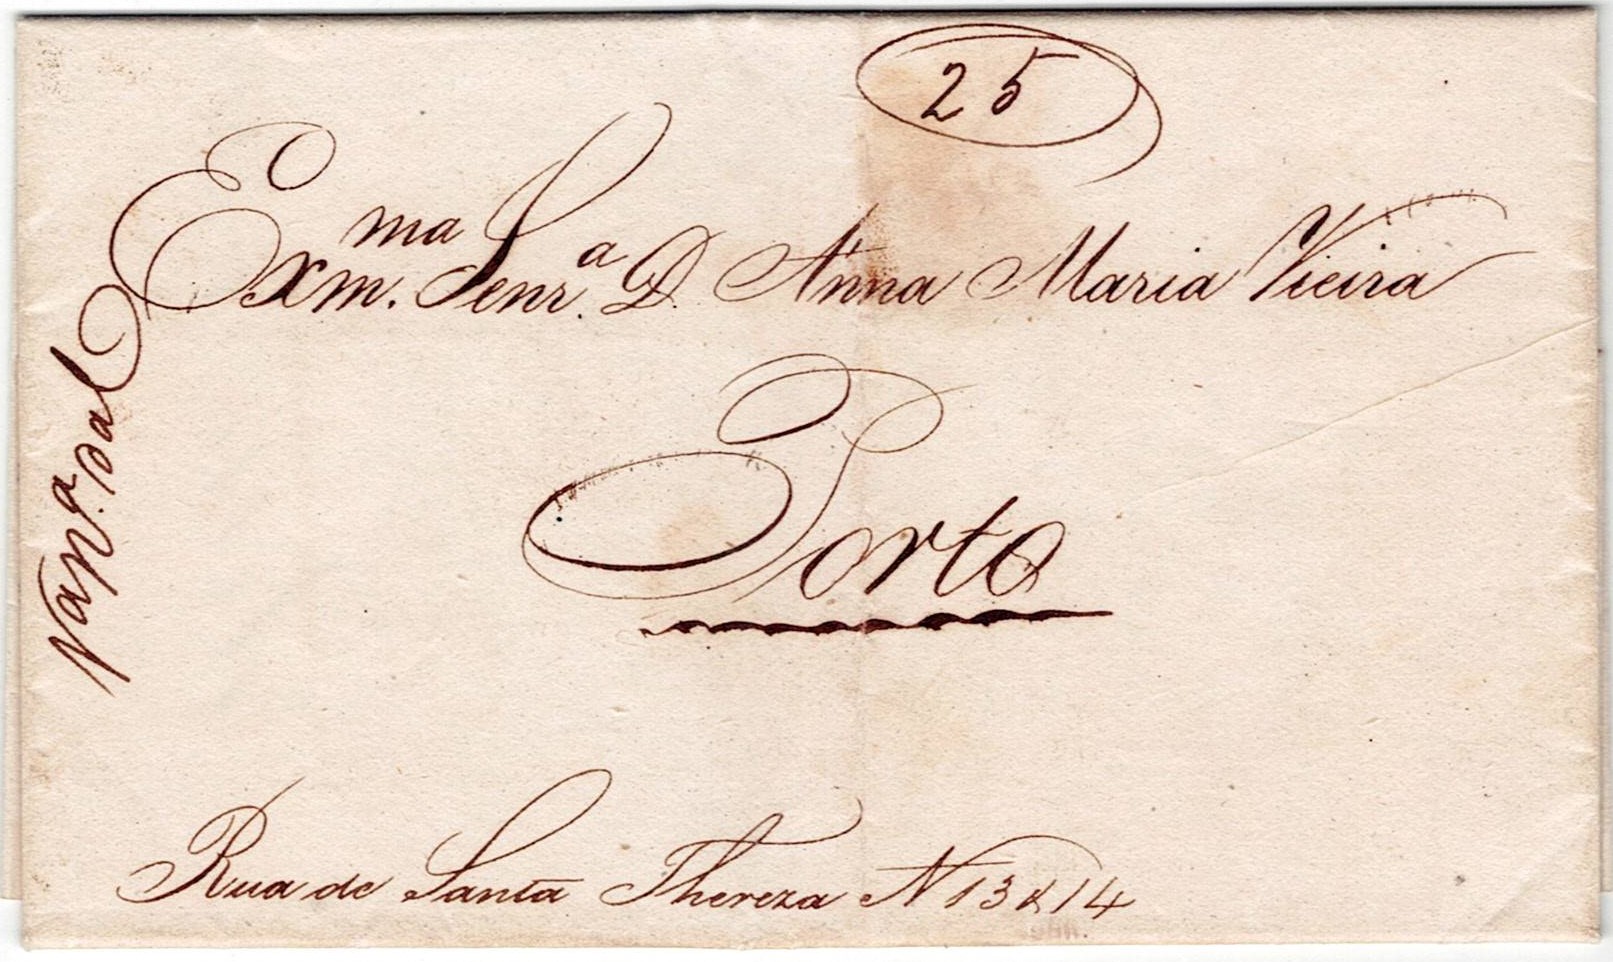 25
Exm.ma Senr.a D. Anna Maria Vieira
Porto
Rua de Santa Thereza N 13 & 14